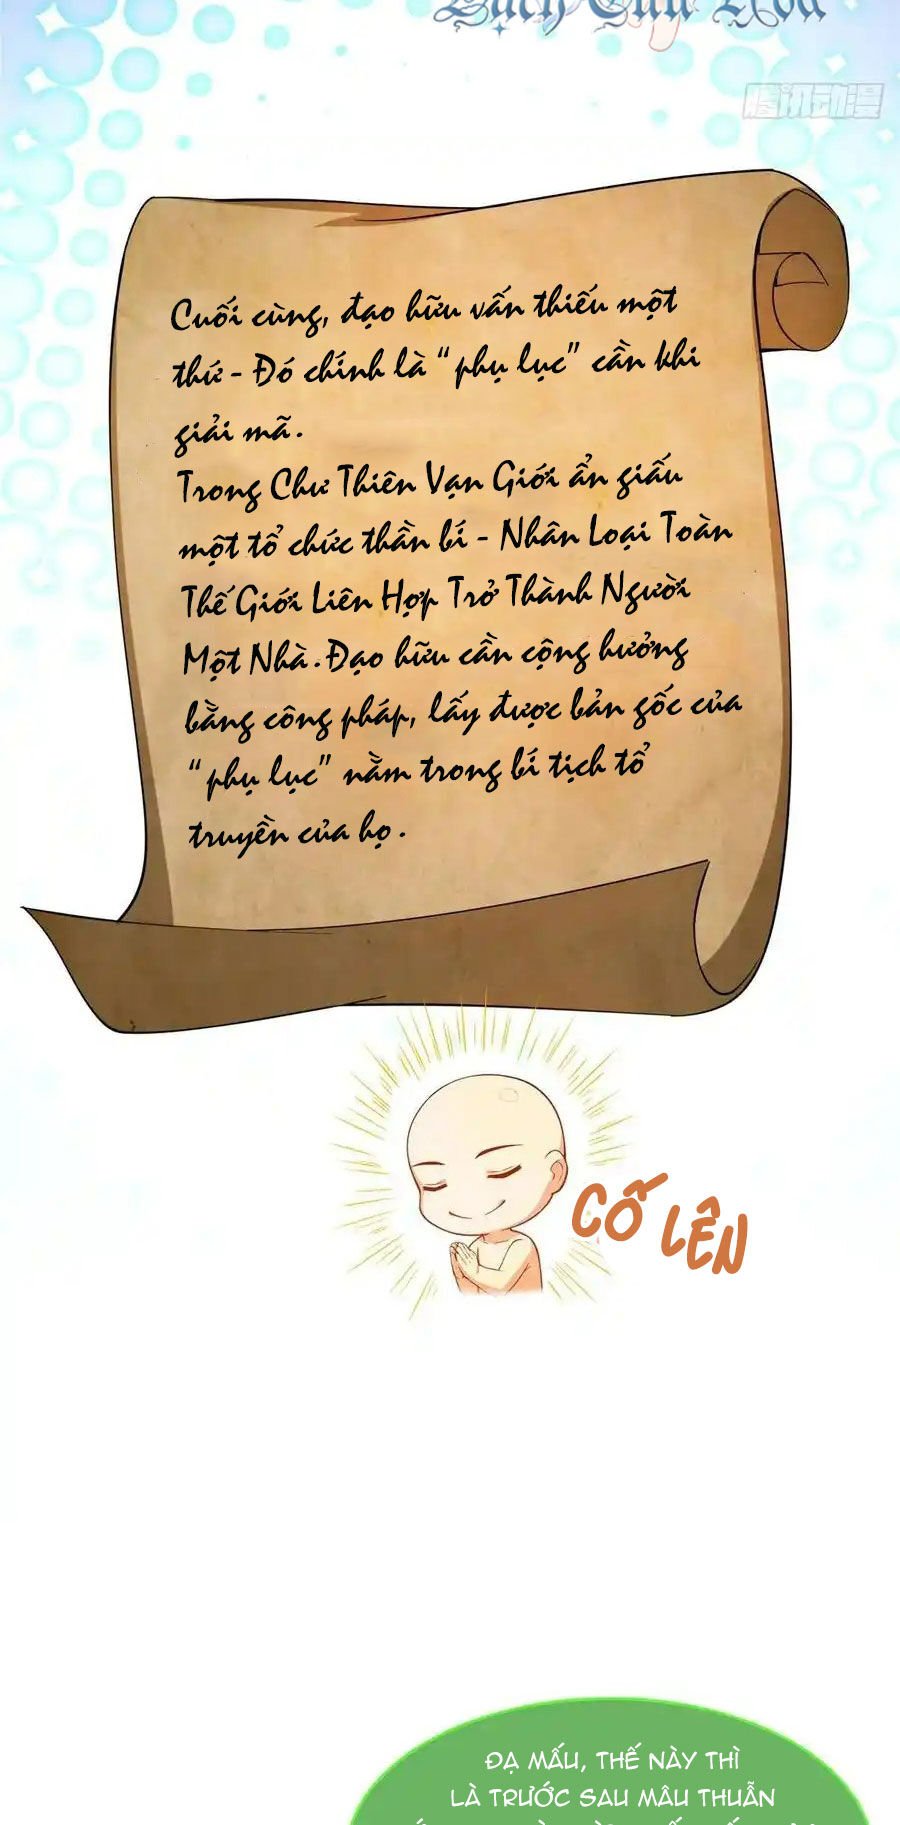 腾讯动漫
Cuối cùng, đạo hữu vẫn thiếu một
thứ - Đó chính là “phụ lục” cần khi
giải mã.
Trong Chư Thiên Vạn Giới ẩn giấu
một tổ chức thần bí - Nhân Loại Toàn
Thế Giới Liên Hợp Trở Thành Người
Một Nhà. Đạo hữu cần cộng hưởng
bằng công pháp, lấy được bản gốc của
“phụ lục” nằm trong bí tịch tổ
truyền của họ.
CỐ LÊN
ĐẠ MẤU, THẾ NÀY THÌ
LÀ TRƯỚC SAU MÂU THUẪN